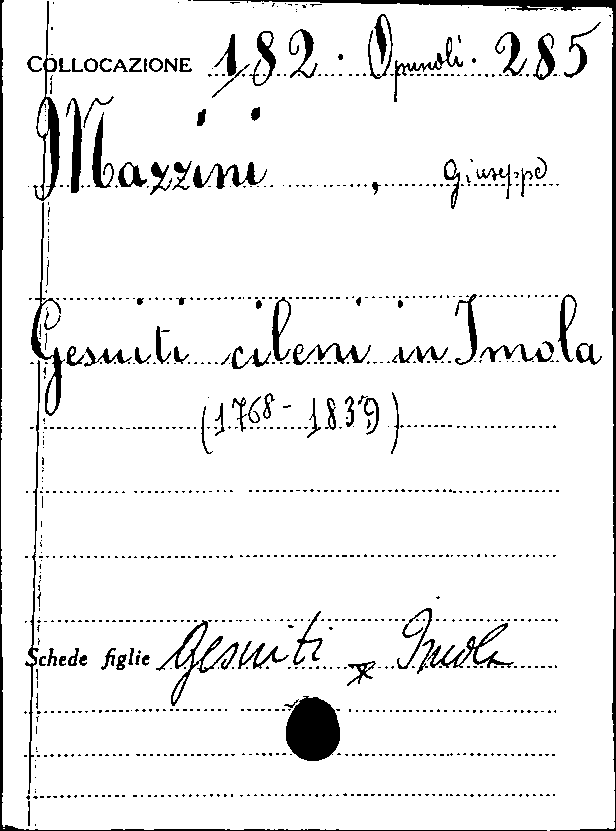 COLLOCAZIONE 182. Opuscoli. 285
Mazzini, Giuseppe
Gesuiti cileni in Imola
(1768-1839)
Schede figlie Gesuiti * Imola